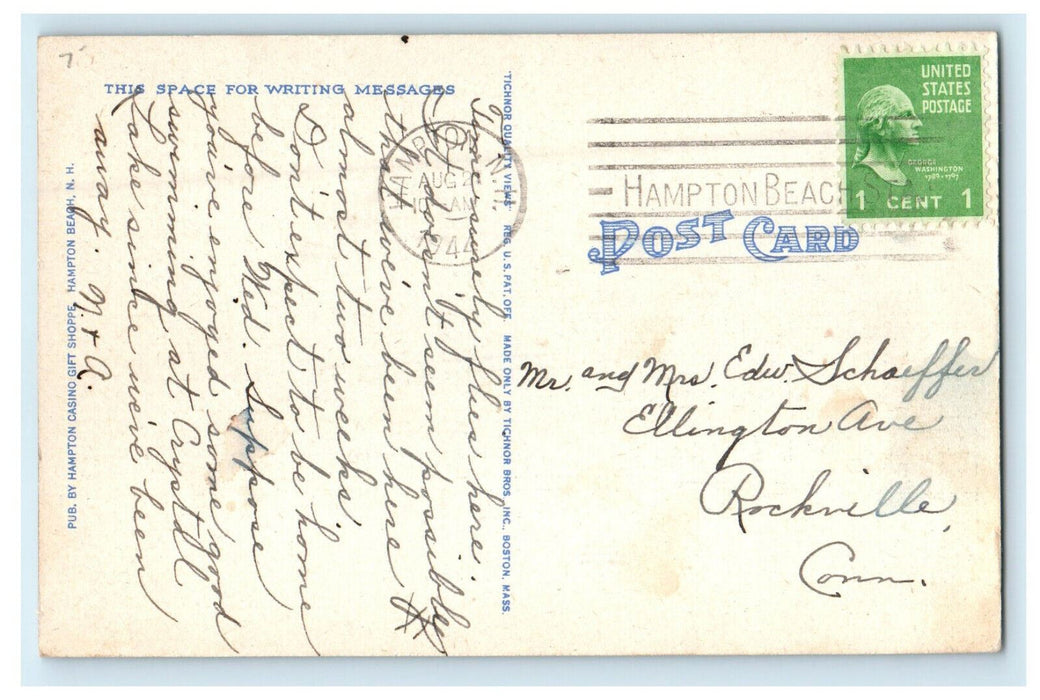 7
THIS SPACE FOR WRITING MESSAGES
Time surely flies here.
It doesn't seem possible
that we've been here
almost two weeks.
Don't expect to be home
before Wed. Suppose
you've enjoyed some good
swimming at Crystal
Lake since we've been
away. N. + A.
PUB. BY HAMPTON CASINO GIFT SHOPPE, HAMPTON BEACH, N. H.
TICHNOR QUALITY VIEWS REG. U. S. PAT. OFF. MADE ONLY BY TICHNOR BROS., INC., BOSTON, MASS.
N.H.
AUG 2
10 AM
1944
HAMPTON BEACH
UNITED
STATES
POSTAGE
GEORGE
WASHINGTON
1789-1797
1 CENT 1
POST CARD
Mr. and Mrs. Edw. Schaeffer
Ellington Ave
Rockville,
Conn.